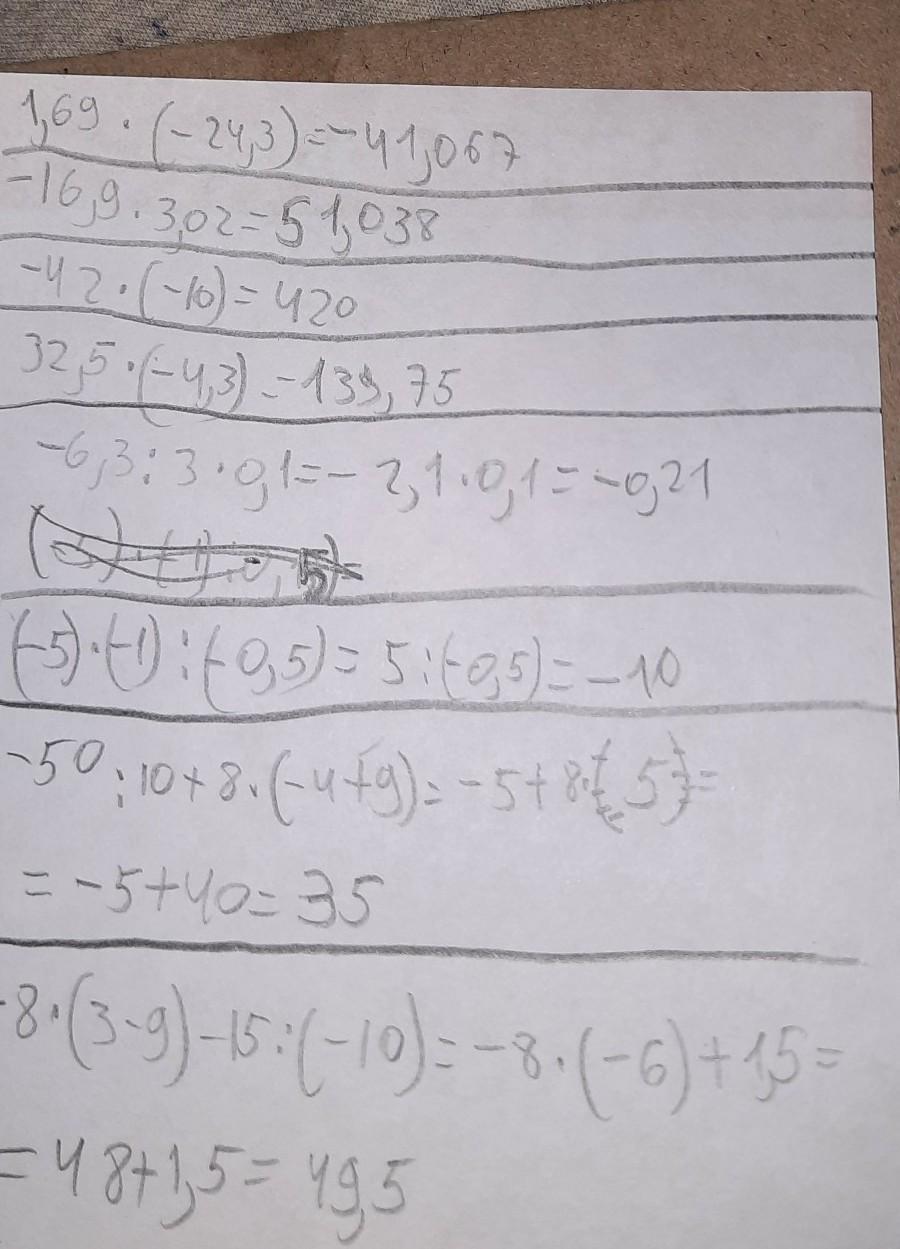 1,69 · (-24,3)=-41,067
-16,9 · 3,02=51,038
-42 · (-10)=420
32,5 · (-4,3)=-139,75
-6,3:3 · 0,1=-2,1 · 0,1=-0,21
(-5) · (-1):(-0,5)=5:(-0,5)=-10
-50:10+8 · (-4+9)=-5+8 · (5)=
=-5+40=35
-8 · (3-9)-15:(-10)=-8 · (-6)+1,5=
=48+1,5=49,5